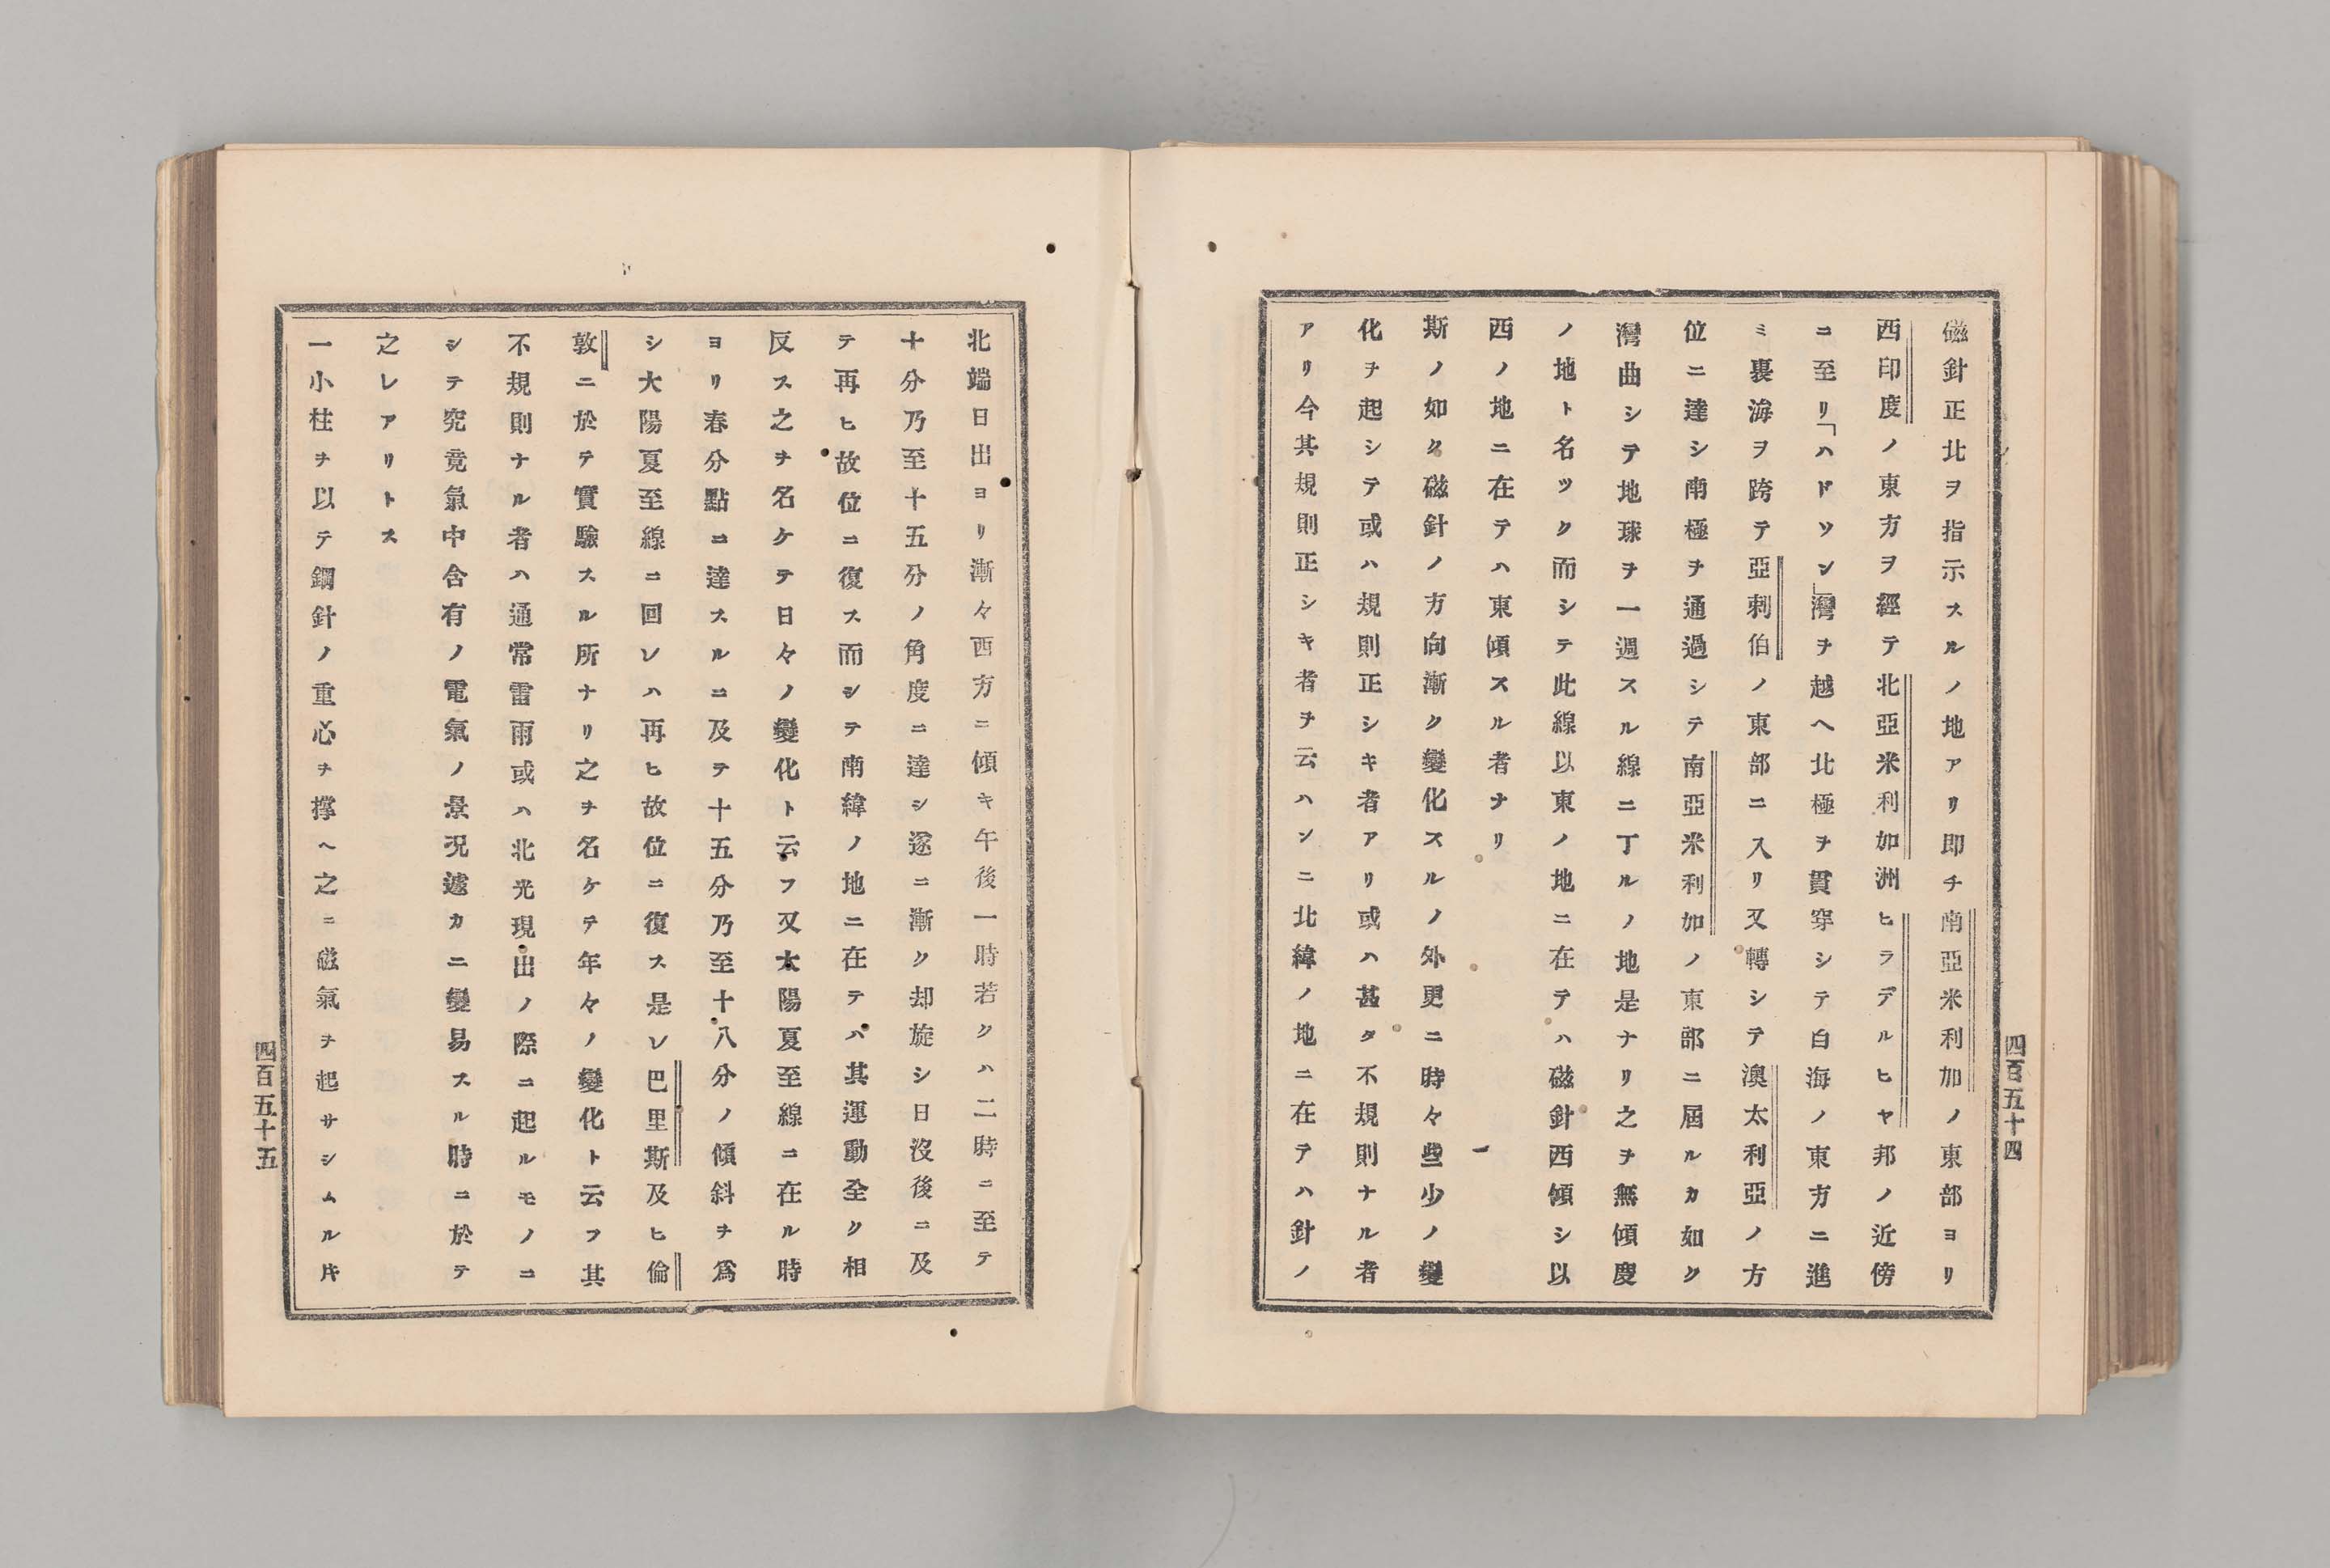 磁針正北ヲ指示スルノ地アリ即チ南亞米利加ノ東部ヨリ
西印度ノ東方ヲ經テ北亞米利加洲ヒラデルヒヤ邦ノ近傍
ニ至リ「ハドソン」灣ヲ越ヘ北極ヲ貫穿シテ白海ノ東方ニ進
ミ裏海ヲ跨テ亞剌伯ノ東部ニ入リ又轉シテ澳太利亞ノ方
位ニ達シ南極ヲ通過シテ南亞米利加ノ東部ニ屆ルカ如ク
灣曲シテ地球ヲ一週スル線ニ丁ルノ地是ナリ之ヲ無傾度
ノ地ト名ツク而シテ此線以東ノ地ニ在テハ磁針西傾シ以
西ノ地ニ在テハ東傾スル者ナリ
斯ノ如ク磁針ノ方向漸ク變化スルノ外更ニ時々些少ノ變
化ヲ起シテ或ハ規則正シキ者アリ或ハ甚タ不規則ナル者
アリ今其規則正シキ者ヲ云ハンニ北緯ノ地ニ在テハ針ノ
四百五十四
北端日出ヨリ漸々西方ニ傾キ午後一時若クハ二時ニ至テ
十分乃至十五分ノ角度ニ達シ遂ニ漸ク却旋シ日沒後ニ及
テ再ヒ故位ニ復ス而シテ南緯ノ地ニ在テハ其運動全ク相
反ス之ヲ名ケテ日々ノ變化ト云フ又太陽夏至線ニ在ル時
ヨリ春分點ニ達スルニ及テ十五分乃至十八分ノ傾斜ヲ爲
シ大陽夏至線ニ回レハ再ヒ故位ニ復ス是レ巴里斯及ヒ倫
敦ニ於テ實驗スル所ナリ之ヲ名ケテ年々ノ變化ト云フ其
不規則ナル者ハ通常雷雨或ハ北光現出ノ際ニ起ルモノニ
シテ究竟氣中含有ノ電氣ノ景況遽カニ變易スル時ニ於テ
之レアリトス
一小柱ヲ以テ鋼針ノ重心ヲ撐ヘ之ニ磁氣ヲ起サシムル片
四百五十五